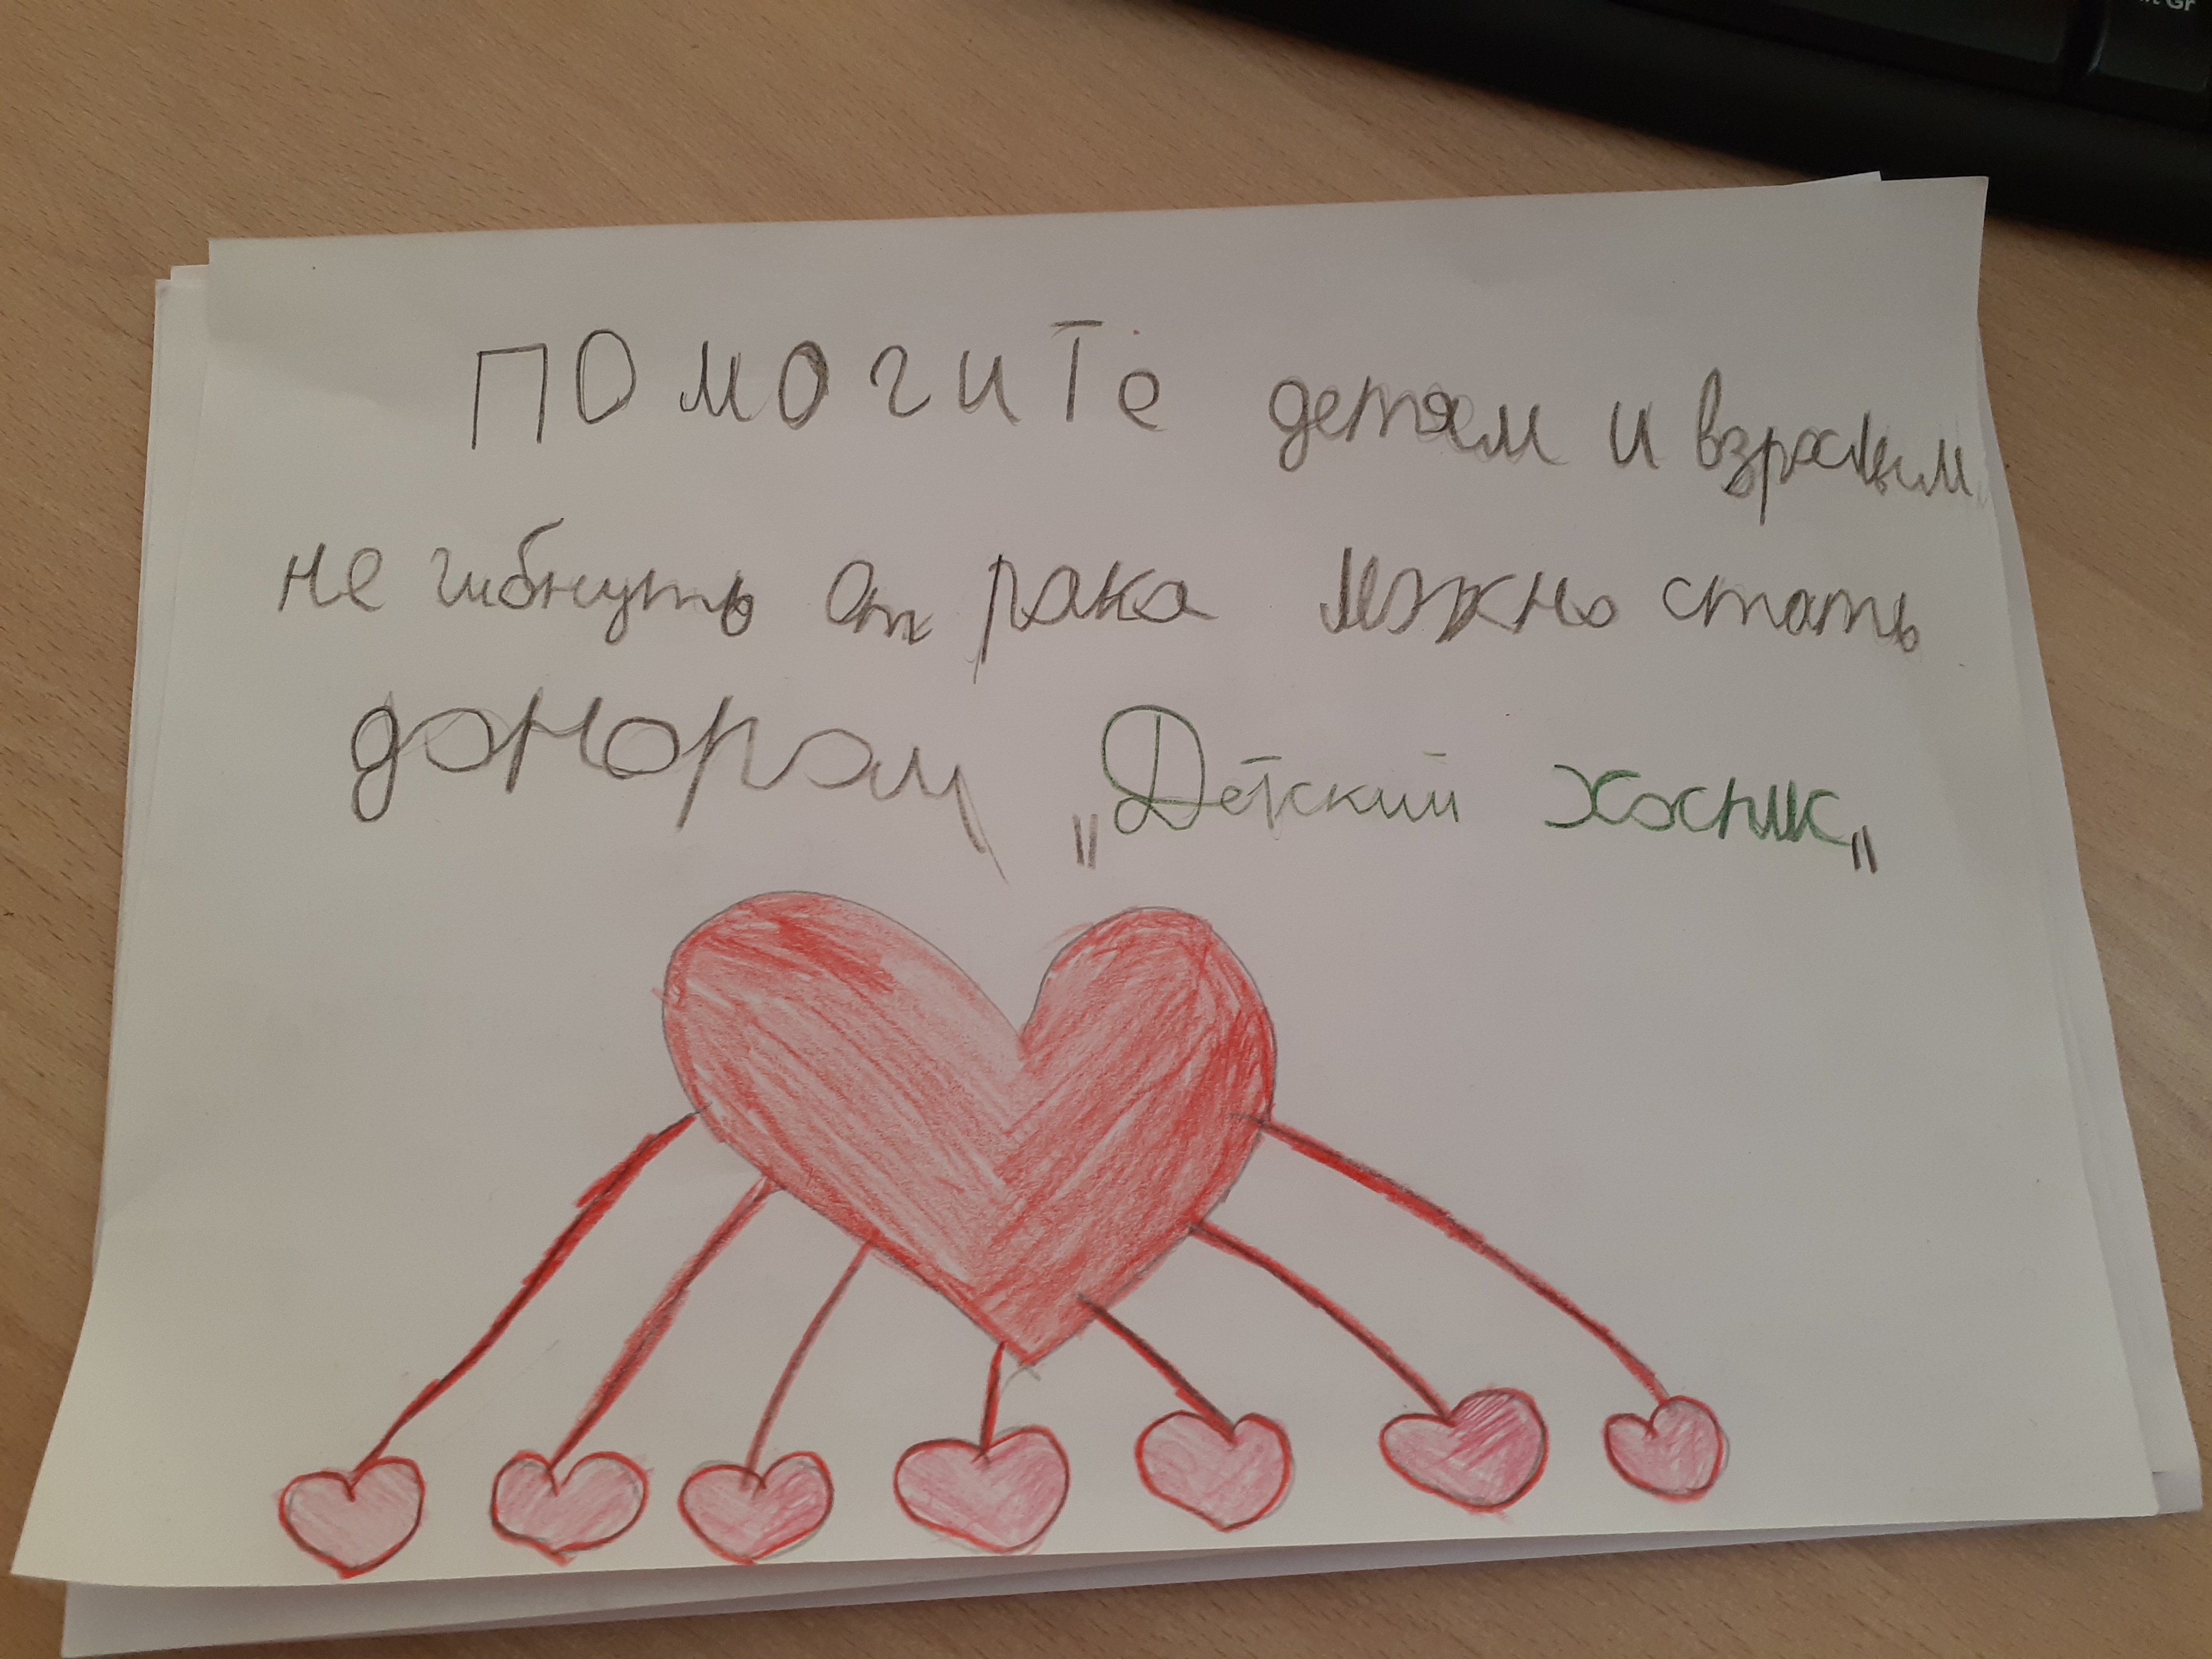 помогите детям и взраслым
не гибнуть от рака можно стать
донором
"Детский хоспис"